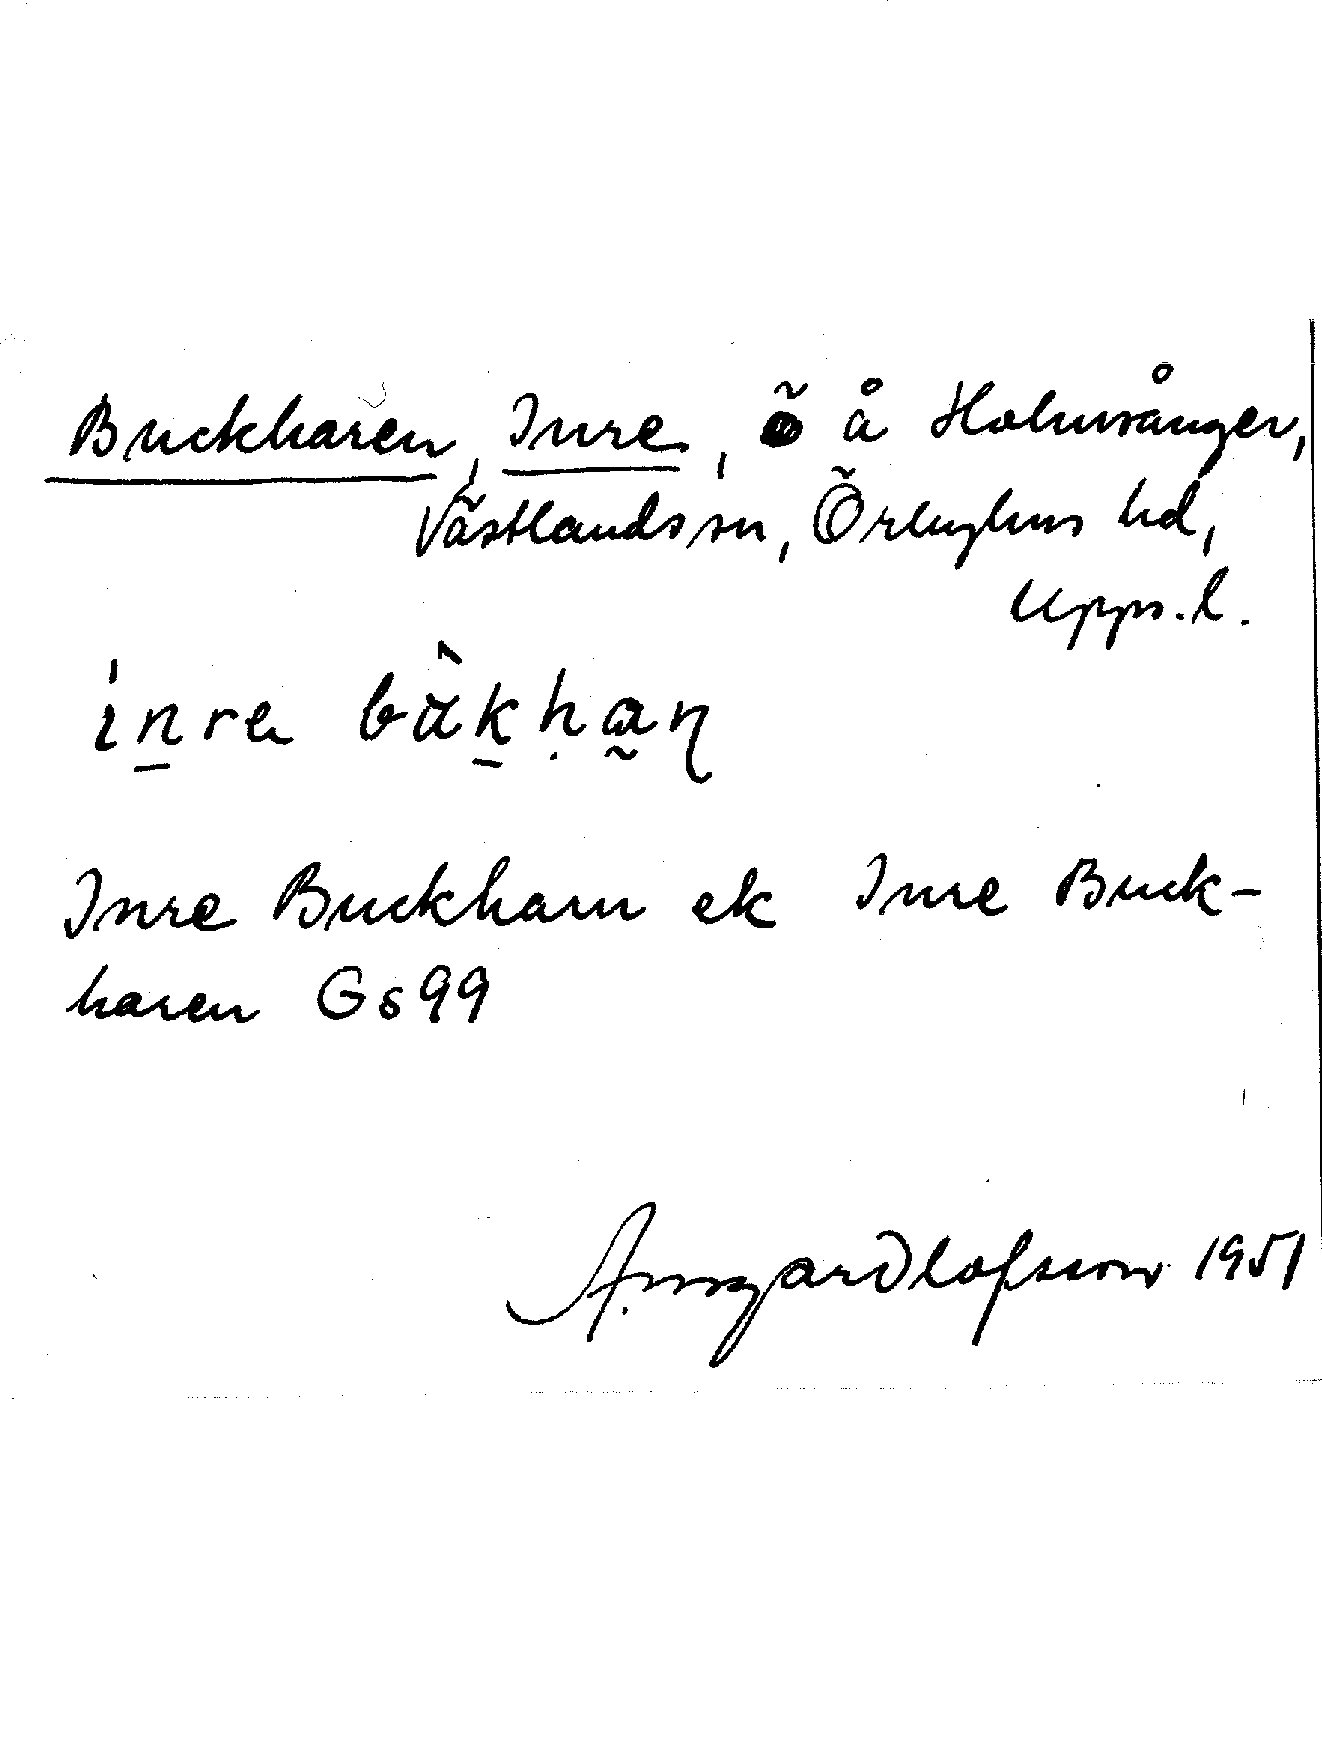 Buckharen, Inre, ö å Holmsånger,
Västlands sn, Örbyhus hd,
Upps. l.
inre bàkhan
Inre Buckharn ek Inre Buck-
haren Gs99
1951